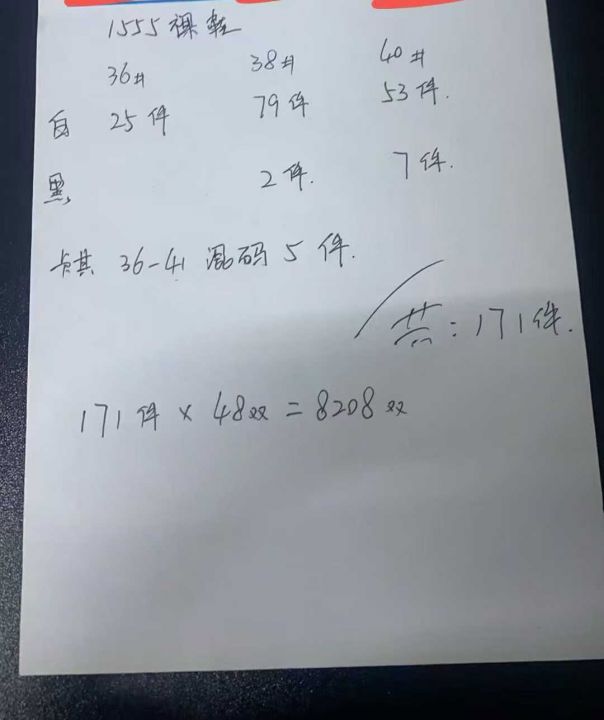 1555裸鞋
36# 38# 40#
白 25件 79件 53件.
黑, 2件. 7件.
卡其 36-41 混码 5件.
共:171件.
171件 × 48双 = 8208双